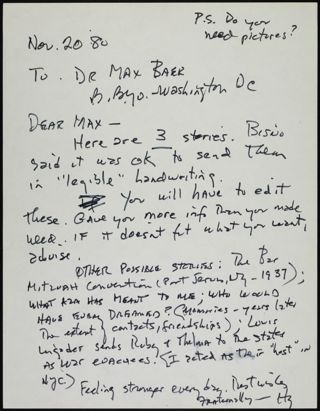 P.S. Do you
need pictures?
Nov. 20 '80
To. Dr Max Baer
B. Byo. - Washington DC
Dear Max -
Here are 3 stories. Bisno
said it was OK to send them
in "legible" handwriting.
You will have to edit
these. Gave you more info than you made
need. If it doesnt fit what you want,
advise.
Other possible stories: The Bar
Mitzvah Convention (Port Jervis, Ny - 1937);
What AZA has meant to me; Who would
have ever dreamed? (Memories - years later
the extent contacts, friendships); Lewis
sends Ruby & Thelma to the States
as war evacuees. (I acted as their "host" in
NYC.)
Feeling stronger every day. Best wishes
Fraternally - Hy